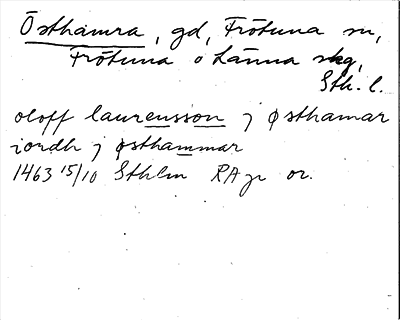 Östhamra, gd, Frötuna sn,
Frötuna o Länna skg,
Sth. l.
oloff laurensson j østhamar
iordh j østhammar
1463 15/10 Sthlm RA p or.